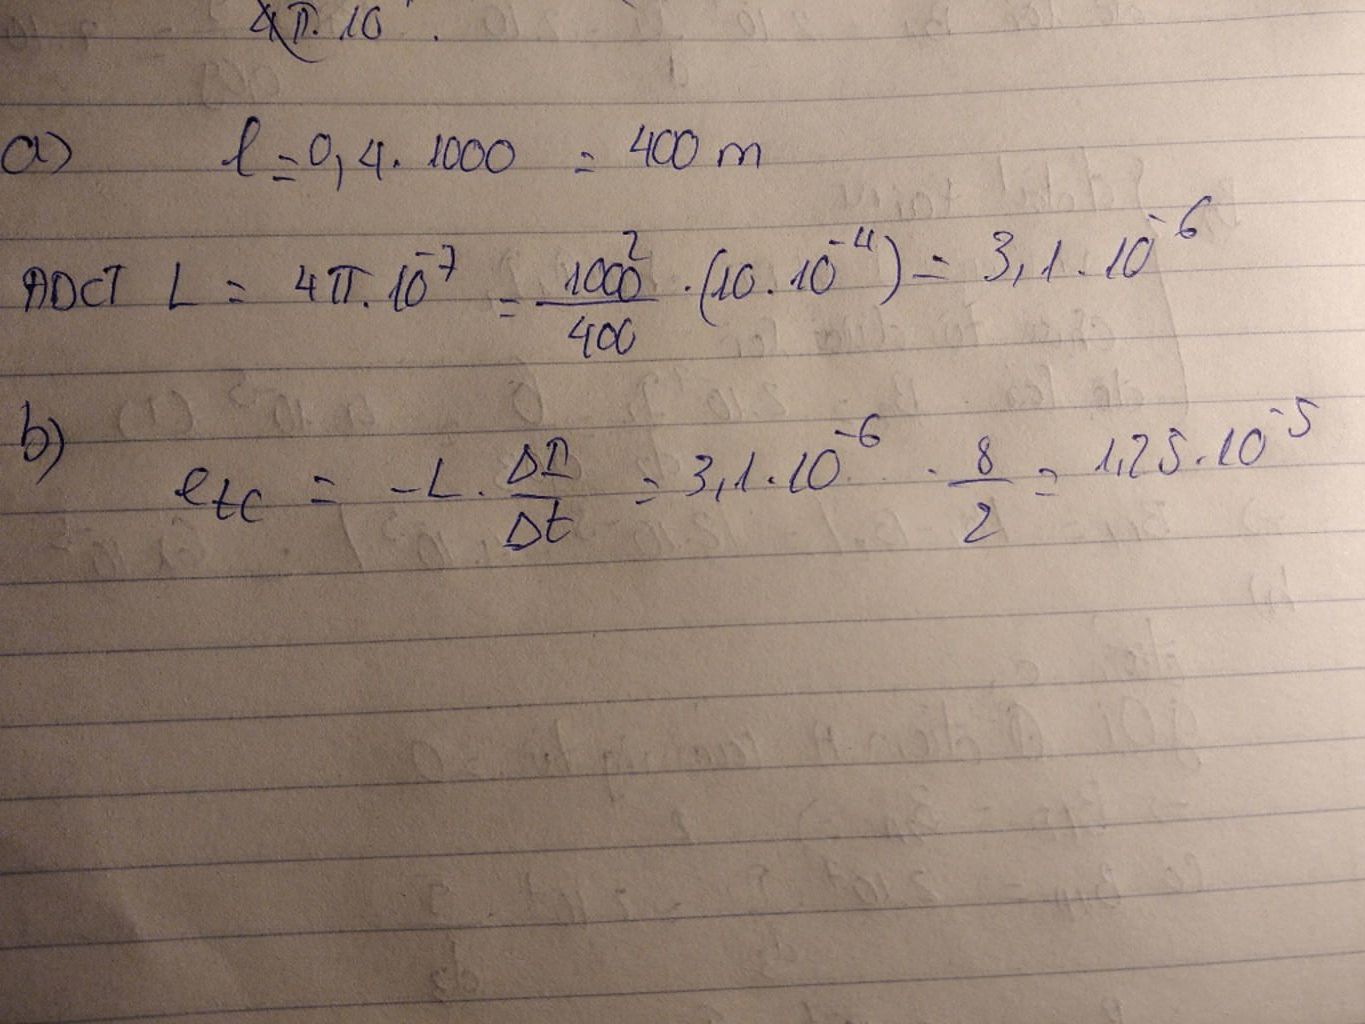 4π.10 .
a) l = 0,4. 1000 = 400 m
ADCT L = 4π.10^-7 = 1000^2/400 .(10.10^-4) = 3,1.10^-6
b) etc = -L. ΔI/Δt = 3,1.10^-6 . 8/2 = 1,25.10^-5